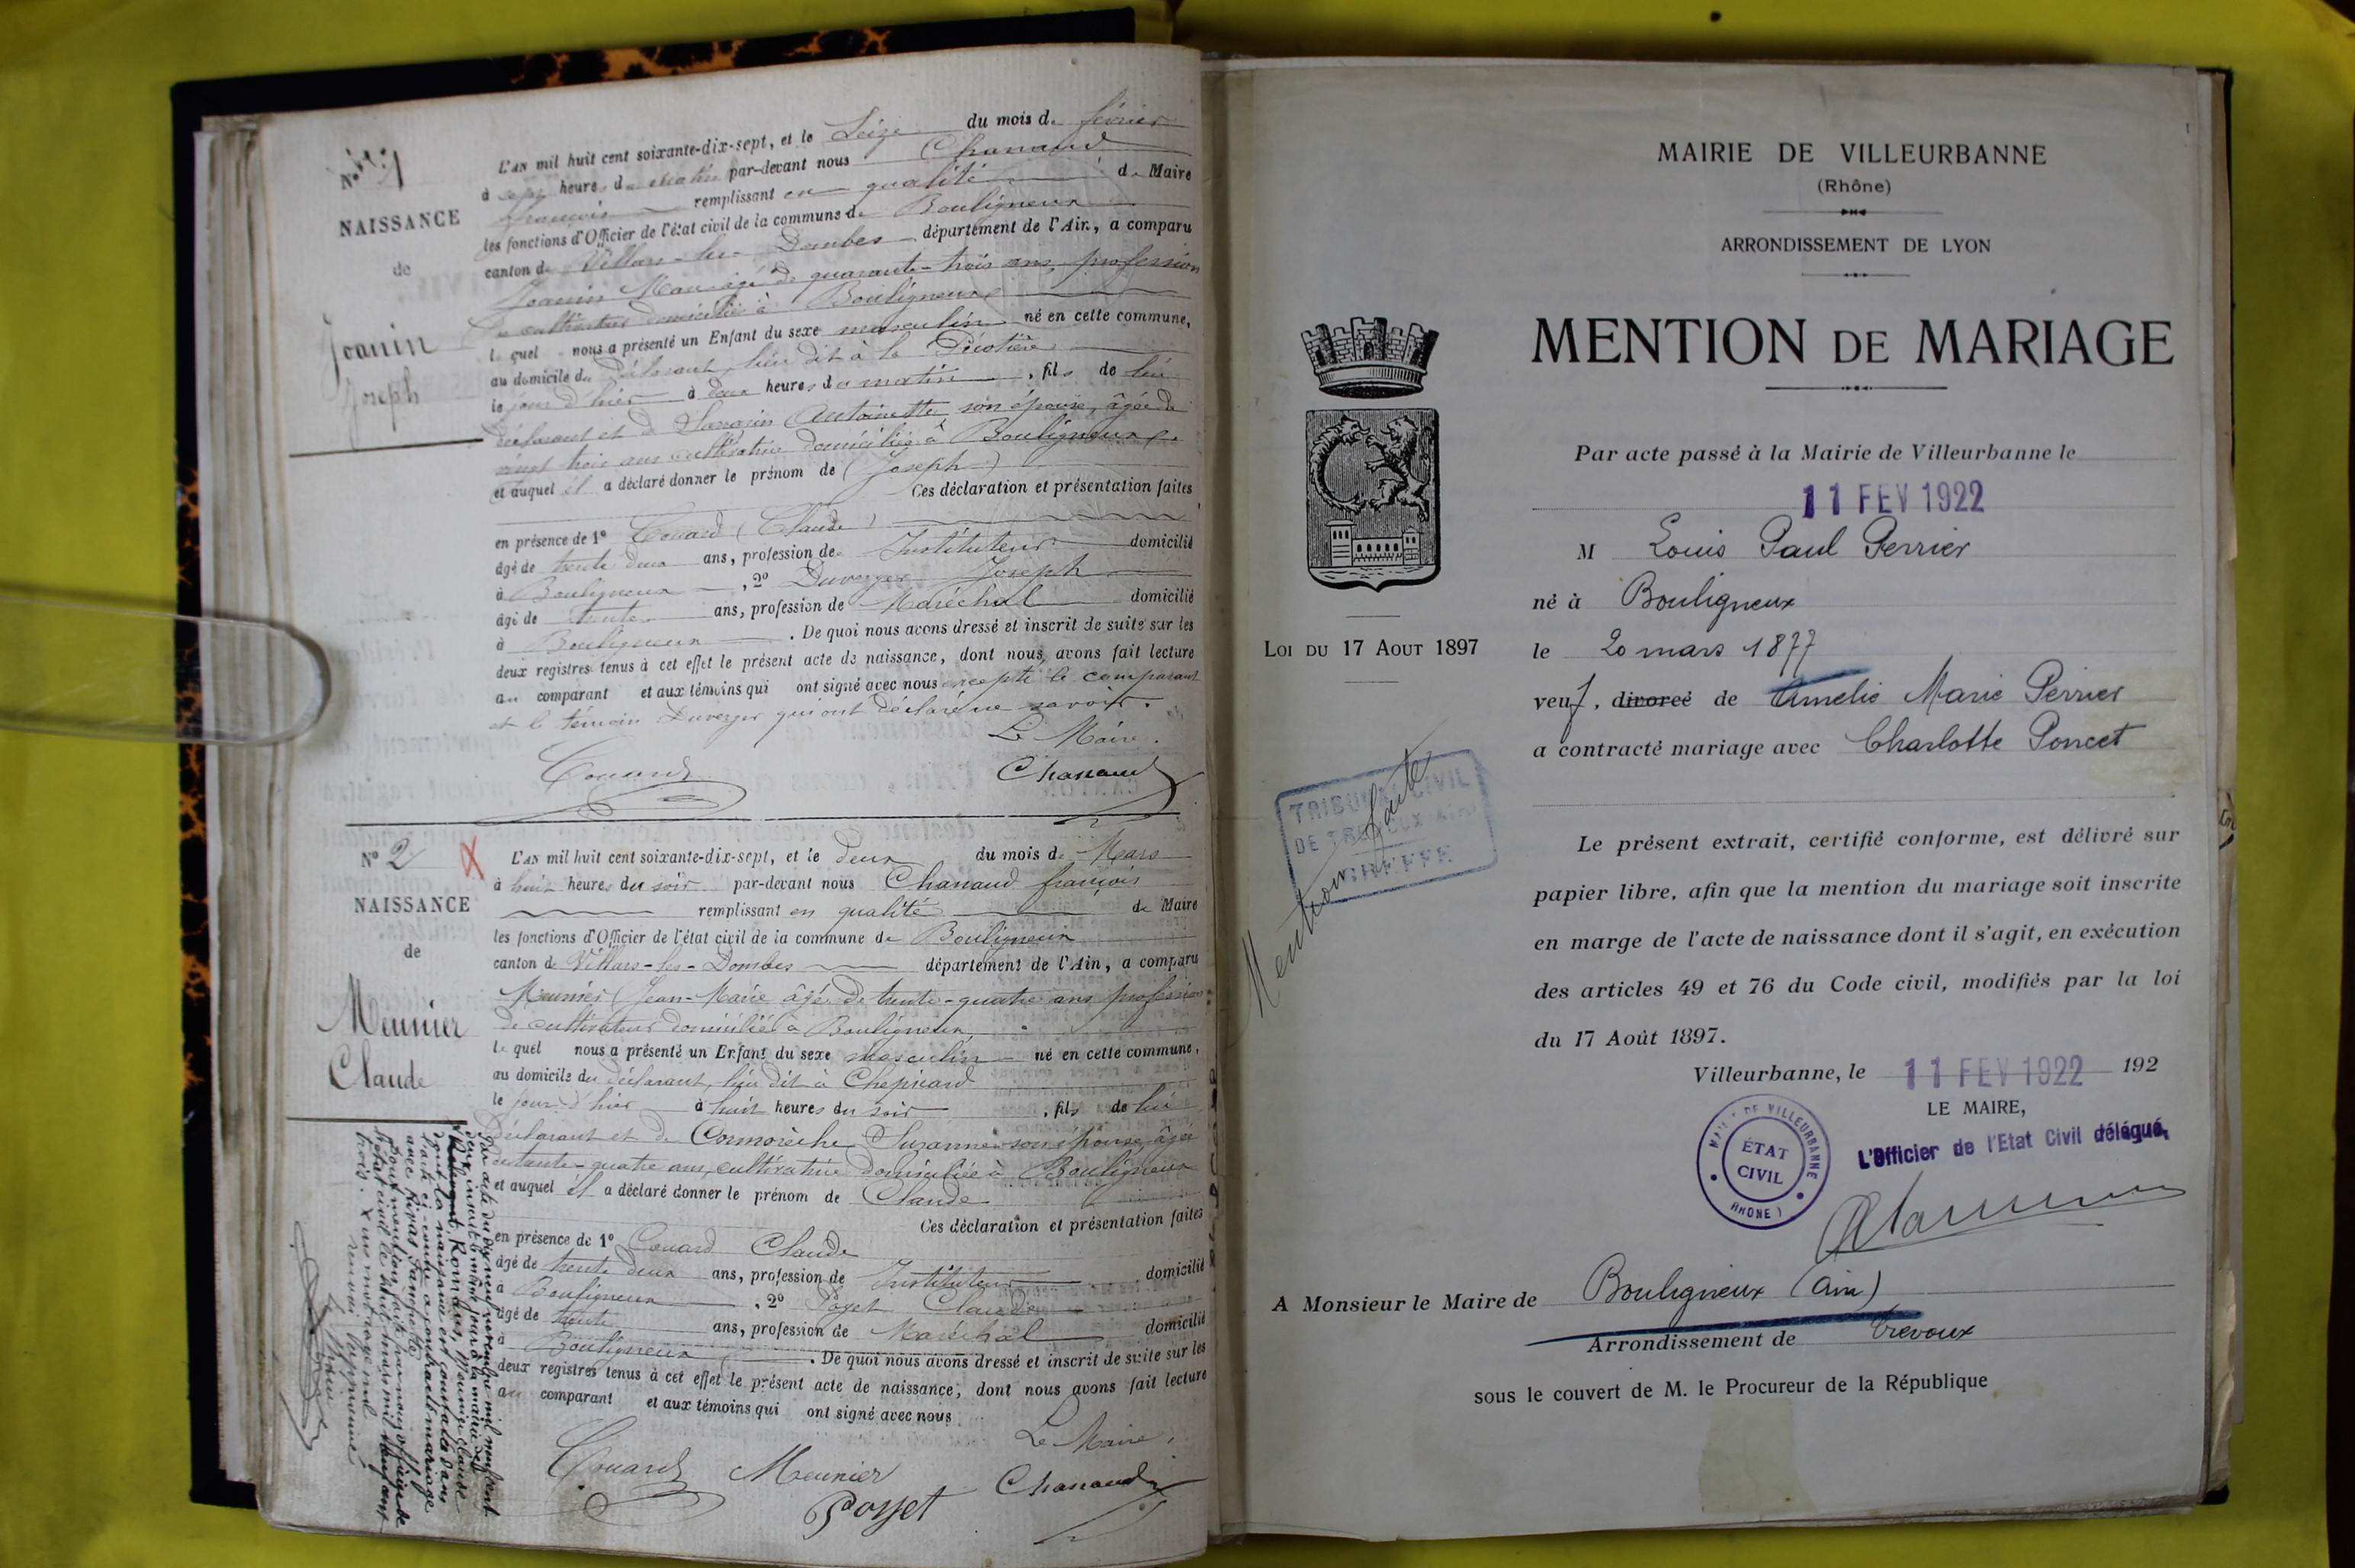 NAISSANCE
de
Joanin
Joseph
L'AN mil huit cent soixante-dix-sept, et le Seize du mois de février
à sept heures du matin par-devant nous Chanaud
françois remplissant en qualité de Maire
les fonctions d'Officier de l'état civil de la commune de Bouligneux
canton de Villars-les-Dombes département de l'Ain, a comparu
Joanin Marc âgé de quarante-trois ans, profession
de cultivateur domicilié à Bouligneux
lequel nous a présenté un Enfant du sexe masculin né en cette commune,
au domicile du déclarant, lieu dit à la
le jour d'hier à deux heures du matin, fils de lui
déclarant et de Antoinette son épouse, âgée de
vingt trois ans cultivatrice domiciliée à Bouligneux
et auquel il a déclaré donner le prénom de (Joseph)
Ces déclaration et présentation faites
en présence de 1º Couard (Claude)
âgé de trente deux ans, profession de Instituteur domicilié
à Bouligneux, 2º Duverger Joseph
âgé de trente ans, profession de Maréchal domicilié
à Bouligneux. De quoi nous avons dressé et inscrit de suite sur les
deux registres tenus à cet effet le présent acte de naissance, dont nous avons fait lecture
au comparant et aux témoins qui ont signé avec nous excepté le comparant
et le témoin Duverger qui ont déclaré ne savoir.
Le Maire.
Couard Chanaud
Nº 2
NAISSANCE
de
Meunier
Claude
L'AN mil huit cent soixante-dix-sept, et le deux du mois de Mars
à huit heures du soir par-devant nous Chanaud françois
remplissant en qualité de Maire
les fonctions d'Officier de l'état civil de la commune de Bouligneux
canton de Villars-les-Dombes département de l'Ain, a comparu
Meunier (Jean-Marie âgé de trente-quatre ans profession
de cultivateur domicilié à Bouligneux
lequel nous a présenté un Enfant du sexe masculin né en cette commune,
au domicile du déclarant, lieu dit à Chepicard
le jour d'hier à huit heures du soir, fils de lui
déclarant et de Cormorèche Suzanne son épouse, âgée
de trente-quatre ans, cultivatrice domiciliée à Bouligneux
et auquel il a déclaré donner le prénom de Claude
Ces déclaration et présentation faites
en présence de 1º Couard Claude
âgé de trente deux ans, profession de Instituteur domicilié
à Bouligneux, 2º Claude
âgé de trente ans, profession de Maréchal domicilié
à Bouligneux. De quoi nous avons dressé et inscrit de suite sur les
deux registres tenus à cet effet le présent acte de naissance, dont nous avons fait lecture
au comparant et aux témoins qui ont signé avec nous
Le Maire,
Couard Meunier Chanaud
Posset
MAIRIE DE VILLEURBANNE
(Rhône)
ARRONDISSEMENT DE LYON
MENTION DE MARIAGE
Par acte passé à la Mairie de Villeurbanne le
11 FEV 1922
M Louis Paul Perrier
né à Bouligneux
LOI DU 17 AOUT 1897
le 20 mars 1877
veuf, divorcé de Amelie Marie Perrier
a contracté mariage avec Charlotte Poncet
TRIBUNAL CIVIL
DE TREVOUX (AIN)
GREFFE
Mention faite
Le présent extrait, certifié conforme, est délivré sur
papier libre, afin que la mention du mariage soit inscrite
en marge de l'acte de naissance dont il s'agit, en exécution
des articles 49 et 76 du Code civil, modifiés par la loi
du 17 Août 1897.
Villeurbanne, le 11 FEV 1922 192
LE MAIRE,
L'Officier de l'Etat Civil délégué,
MAIRIE DE VILLEURBANNE
ÉTAT
CIVIL
(RHONE)
A Monsieur le Maire de Bouligneux (Ain)
Arrondissement de Trevoux
sous le couvert de M. le Procureur de la République